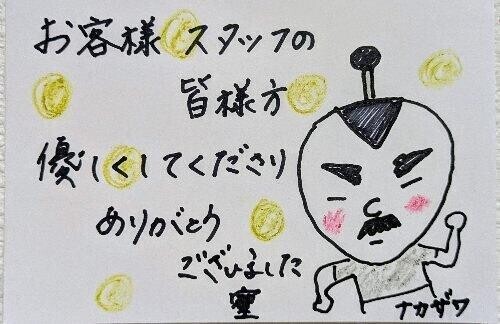 お客様 スタッフの
皆様方
優しくしてくださり
ありがとう
ございました
ナカザワ